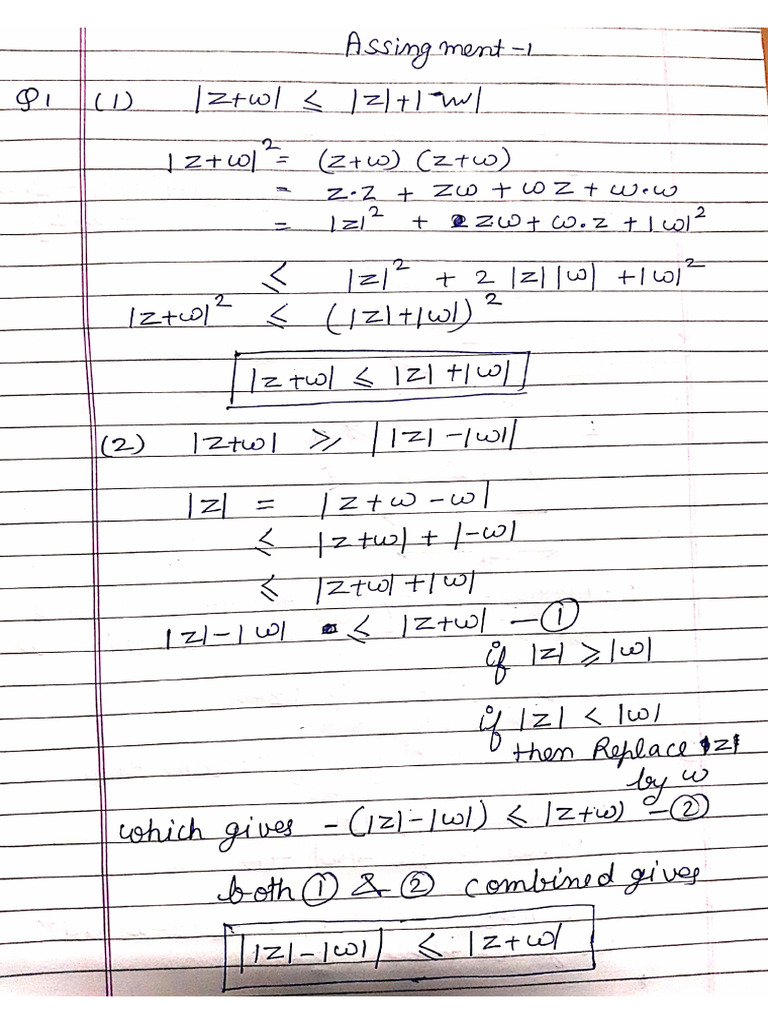 Assingment-1
Q1 (1) |z+ω| ≤ |z|+|ω|
|z+ω|² = (z+ω) (z+ω)
= z·z + zω + ωz + ω·ω
= |z|² + zω + ω·z + |ω|²
≤ |z|² + 2 |z| |ω| + |ω|²
|z+ω|² ≤ (|z|+|ω|)²
|z+ω| ≤ |z|+|ω|
(2) |z+ω| ≥ ||z|-|ω||
|z| = |z+ω-ω|
≤ |z+ω| + |-ω|
≤ |z+ω| + |ω|
|z|-|ω| ≤ |z+ω| - ①
if |z| ≥ |ω|
if |z| < |ω|
then Replace z
by ω
which gives -(|z|-|ω|) ≤ |z+ω) - ②
both ① & ② combined gives
||z|-|ω|| ≤ |z+ω|